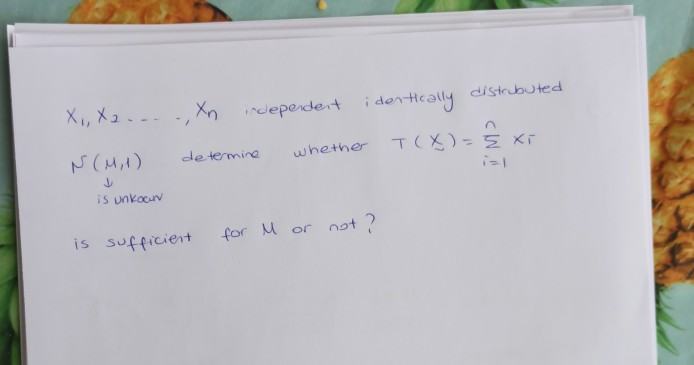 X₁, X₂ - - - ., Xn independent identically distributed
N(M,1) determine whether T(X̰) = Σ Xi
n
i=1
↓
is unkown
is sufficient for M or not?